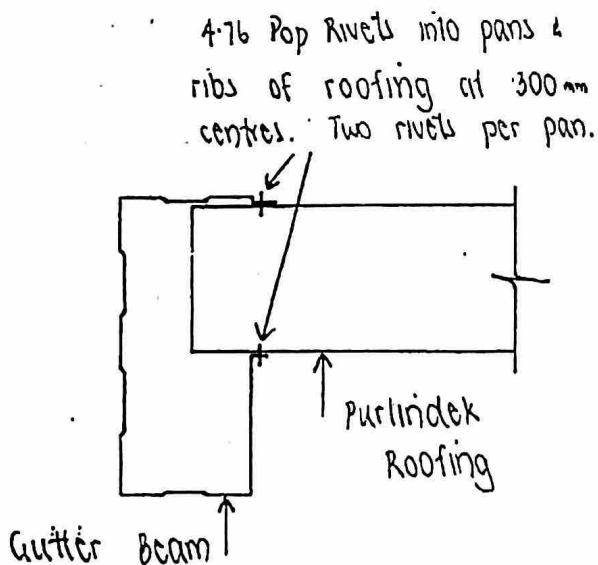 4.76 Pop Rivets into pans &
ribs of roofing at 300mm
centres. Two rivets per pan.
Purlindek
Roofing
Gutter Beam